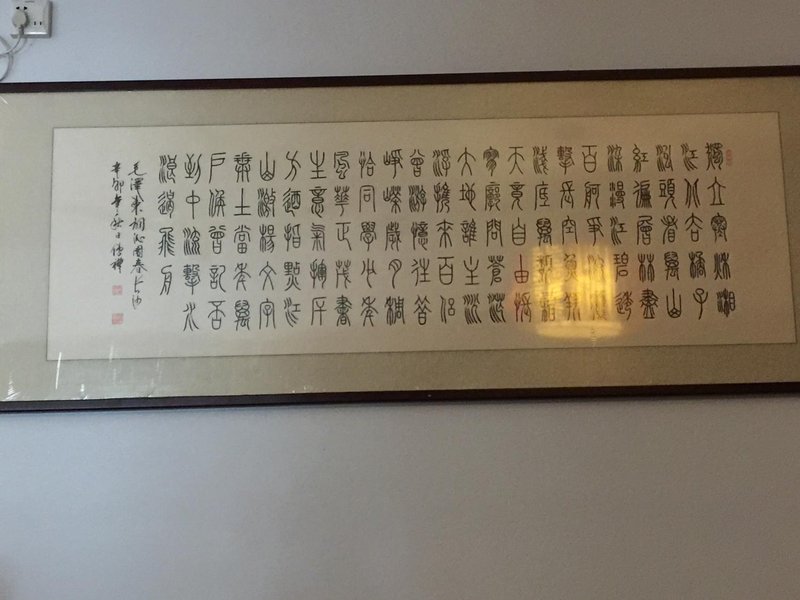 獨立寒秋湘
江北去橘子
洲頭看萬山
紅遍層林盡
染漫江碧透
百舸爭流鷹
擊長空魚翔
淺底萬類霜
天競自由悵
寥廓問蒼茫
大地誰主沉
浮攜來百侶
曾游憶往昔
崢嶸歲月稠
恰同學少年
風華正茂書
生意氣揮斥
方遒指點江
山激揚文字
糞土當年萬
戶侯曾記否
到中流擊水
浪遏飛舟
毛澤東詞沁園春長沙
辛卯年